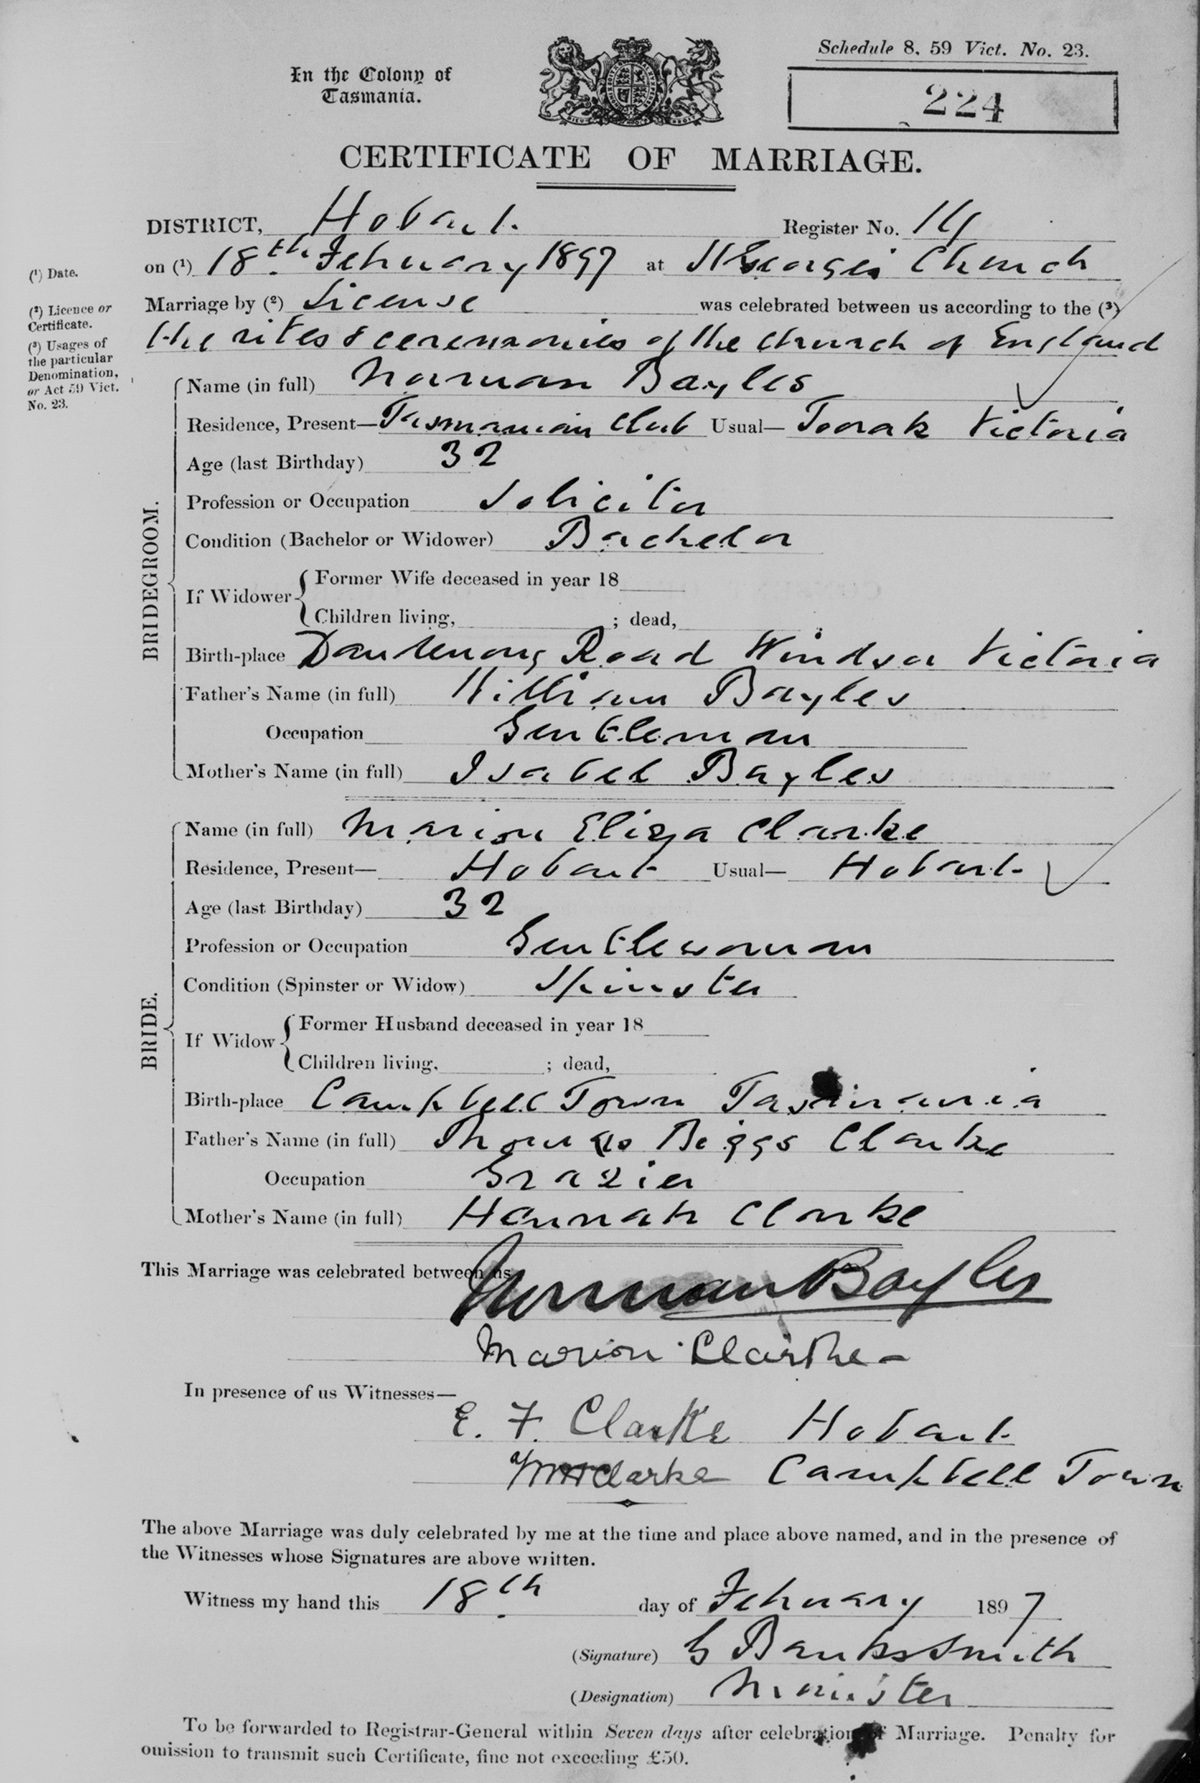 In the Colony of
Tasmania.
Schedule 8. 59 Vict. No. 23.
224
CERTIFICATE OF MARRIAGE.
DISTRICT, Hobart.
Register No.
(¹) Date.
on (¹) 18th February 1897 at St Georges Church
(²) Licence or
Certificate.
Marriage by (²) License was celebrated between us according to the (³)
(³) Usages of
the particular
Denomination,
or Act 59 Vict.
No. 23.
the rites & ceremonies of the Church of England
BRIDEGROOM.
Name (in full) Norman Bayles
Residence, Present— Tasmanian Club Usual— Toorak Victoria
Age (last Birthday) 32
Profession or Occupation Solicitor
Condition (Bachelor or Widower) Bachelor
If Widower
Former Wife deceased in year 18
Children living, ; dead,
Birth-place Dandenong Road Windsor Victoria
Father's Name (in full) William Bayles
Occupation Gentleman
Mother's Name (in full) Isabel Bayles
BRIDE.
Name (in full) Marion Eliza Clarke
Residence, Present— Hobart Usual— Hobart
Age (last Birthday) 32
Profession or Occupation Gentlewoman
Condition (Spinster or Widow) Spinster
If Widow
Former Husband deceased in year 18
Children living, ; dead,
Birth-place Campbell Town Tasmania
Father's Name (in full) Thomas Biggs Clarke
Occupation Grazier
Mother's Name (in full) Hannah Clarke
This Marriage was celebrated between us
Norman Bayles
Marion Clarke
In presence of us Witnesses—
E. F. Clarke Hobart
Clarke Campbell Town
The above Marriage was duly celebrated by me at the time and place above named, and in the presence of
the Witnesses whose Signatures are above written.
Witness my hand this 18th day of February 1897
(Signature) G Banks Smith
(Designation) Minister
To be forwarded to Registrar-General within Seven days after celebration of Marriage. Penalty for
omission to transmit such Certificate, fine not exceeding £50.